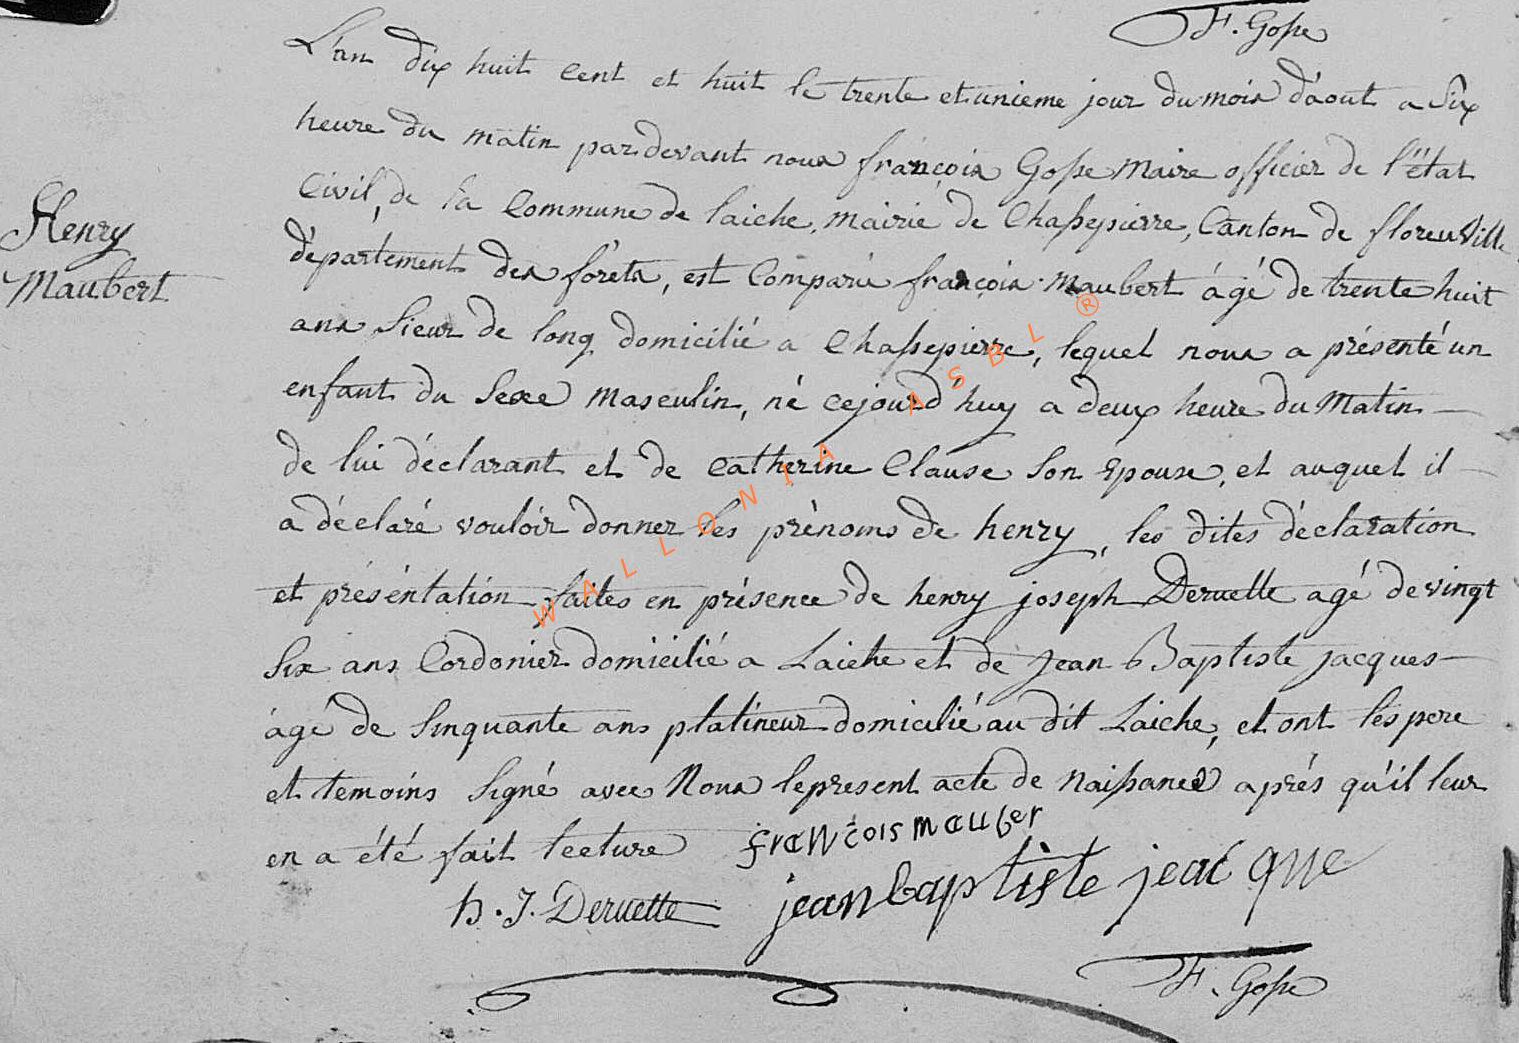 F. Gosse
L'an dix huit cent et huit le trente et unieme jour du mois d'aout a six
heure du matin pardevant nous françois Gosse Maire officier de l'état
Civil, de la Commune de laiche, mairie de Chassepierre, Canton de florenville
département des forêts, est Comparu françois Maubert âgé de trente huit
ans sieur de long domicilié a Chassepierre, lequel nous a présenté un
enfant du sexe masculin, né cejourd'huy a deux heure du Matin
de lui déclarant et de Catherine Clause son Epouse, et auquel il
a déclaré vouloir donner les prénoms de henry, les dites déclaration
et présentation faites en présence de henry joseph Deruette agé de vingt
six ans Cordonier domicilié a Laiche et de Jean Baptiste jacques
âgé de sinquante ans platineur domicilié au dit Laiche, et ont les pere
et temoins signé avec Nous le present acte de Naissance aprés qu'il leur
en a été fait lecture françois mauber
Henry
Maubert
h. J. Deruette jean baptiste jeacque
F. Gosse
WALLONIA ASBL ®